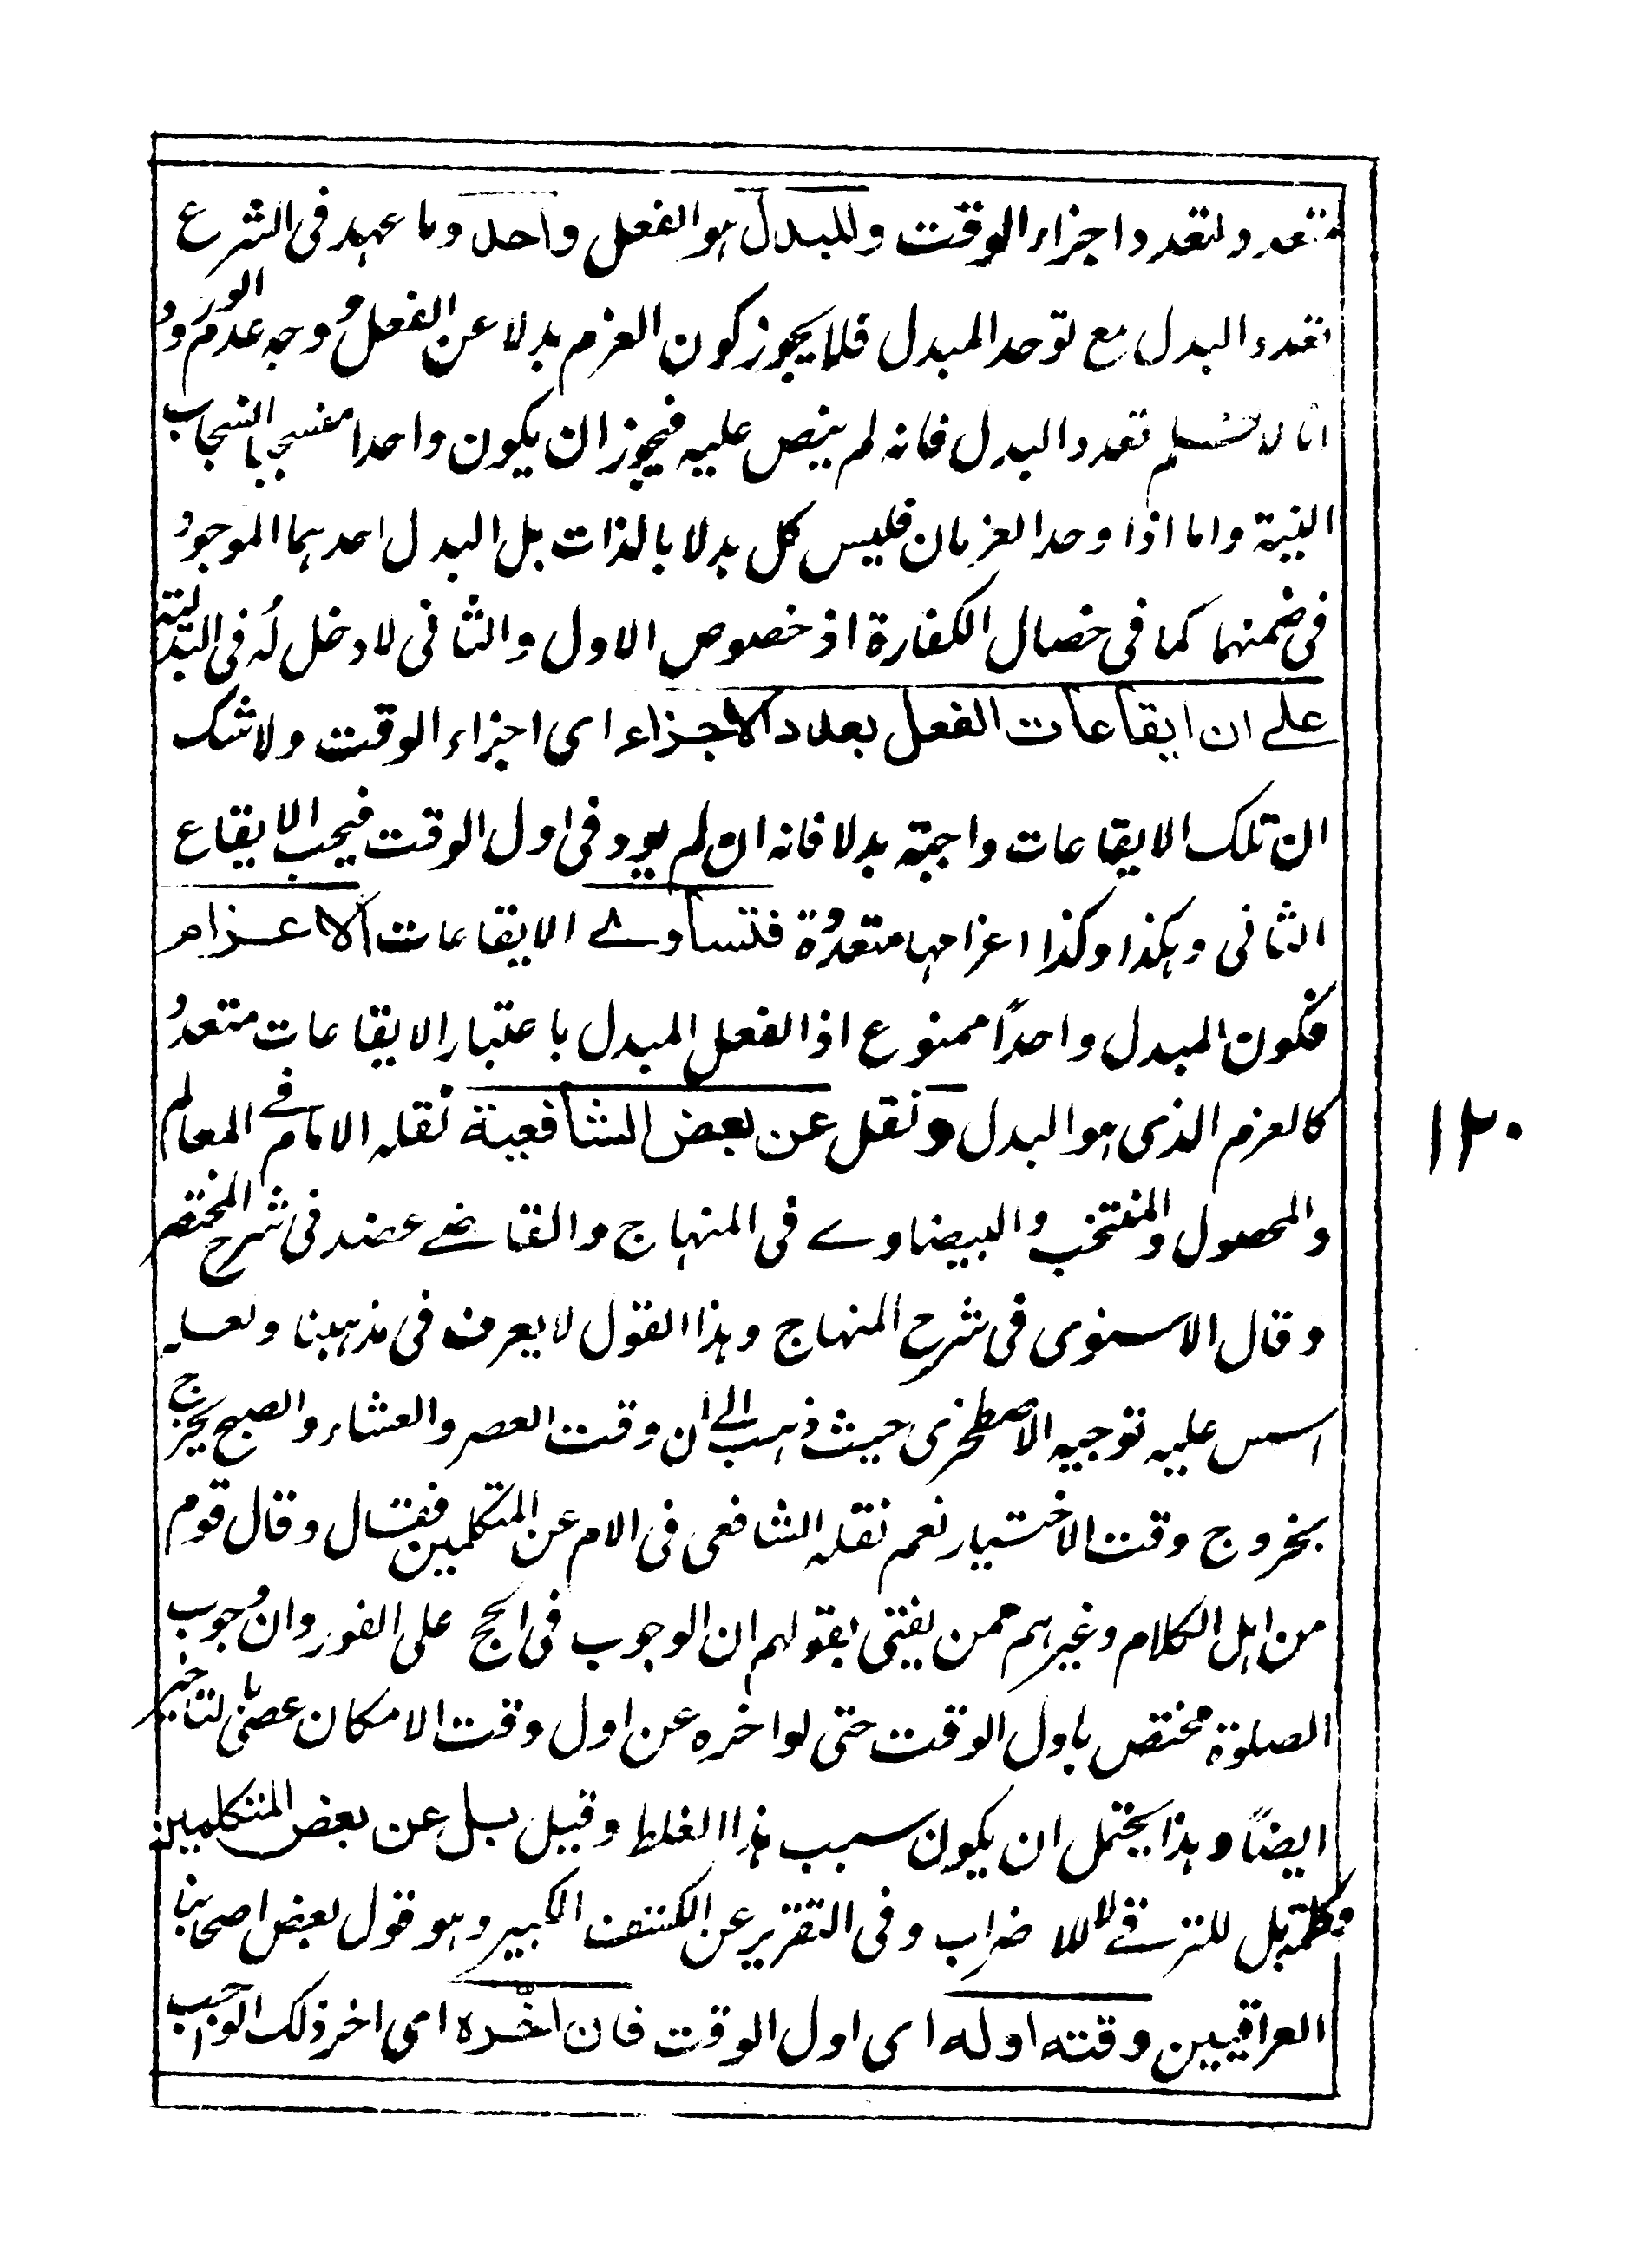 متعدد لتعدد اجزاء الوقت والمبدل هو الفعل واحد وما عهد فى الشرع
تعدد البدل مع توحد المبدل فلا يجوز كون العزم بدلا عن الفعل ووجه عدم الورود
انا لا نسلم تعدد البدل فانه لم ينص عليه فيجوز ان يكون واحدا منسحبا انسحاب
النية واما اذا وحد العزمان فليس كل بدلا بالذات بل البدل احدهما الموجود
فى ضمنهما كما فى خصال الكفارة اذ خصوص الاول والثانى لا دخل له فى البدلية
على ان ايقاعات الفعل بعدد الاجزاء اى اجزاء الوقت ولا شك
ان تلك الايقاعات واجبة بدلا فانه ان لم يود فى اول الوقت فيجب الايقاع
الثانى وهكذا وكذا اعزامها متعددة فتساوى الايقاعات الاعزام
فكون المبدل واحدًا ممنوع اذ الفعل المبدل باعتبار الايقاعات متعدد
كالعزم الذى هو البدل ونقل عن بعض الشافعية نقله الامام فى المعالم
والمحصول والمنتخب والبيضاوى فى المنهاج والقاضى عضد فى شرح المختصر
وقال الاسنوى فى شرح المنهاج وهذا القول لا يعرف فى مذهبنا ولعله
اسس عليه توجيه الاصطخرى حيث ذهب الى ان وقت العصر والعشاء والصبح يخرج
بخروج وقت الاختيار نعم نقله الشافعى فى الام عن المتكلمين فقال وقال قوم
من اهل الكلام وغيرهم ممن يفتى بقولهم ان الوجوب فى الحج على الفور وان وجوب
الصلوة مختص باول الوقت حتى لو اخره عن اول وقت الامكان عصى بالتاخير
ايضًا وهذا يحتمل ان يكون سبب هذا الغلط وقيل بل عن بعض المتكلمين
وكلمة بل للترقى لا للاضراب وفى التقرير عن الكشف الكبير وهو قول بعض اصحابنا
العراقيين وقته اوله اى اول الوقت فان اخّره اى اخر ذلك الواجب
١٢٠